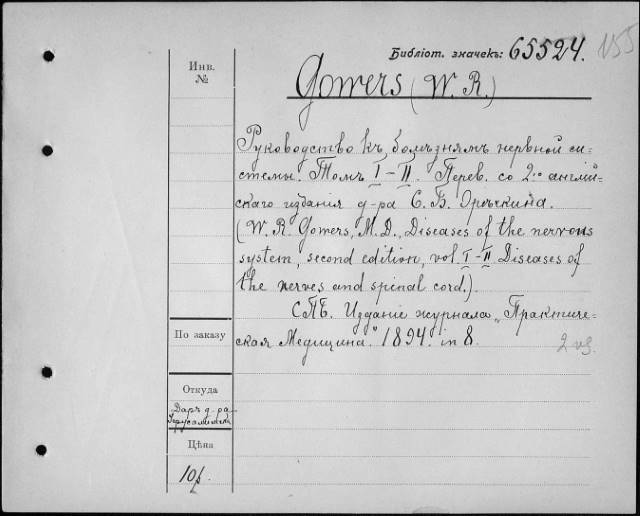 Библіот. значекъ: 65524. 155
Инв. №
Gowers (W. R.)
Руководство къ болѣзнямъ нервной си-
стемы. Томъ I–II. Перев. со 2го англій-
скаго изданія д-ра С. Б. Орѣчкина.
(W. R. Gowers, M. D., Diseases of the nervous
system, second edition, vol. I–II Diseases of
the nerves and spinal cord.).
СПБ. Изданіе журнала „Практиче-
ская Медицина." 1894. in 8.
2 vs.
По заказу
Откуда
Даръ д-ра
Цѣна
10р.